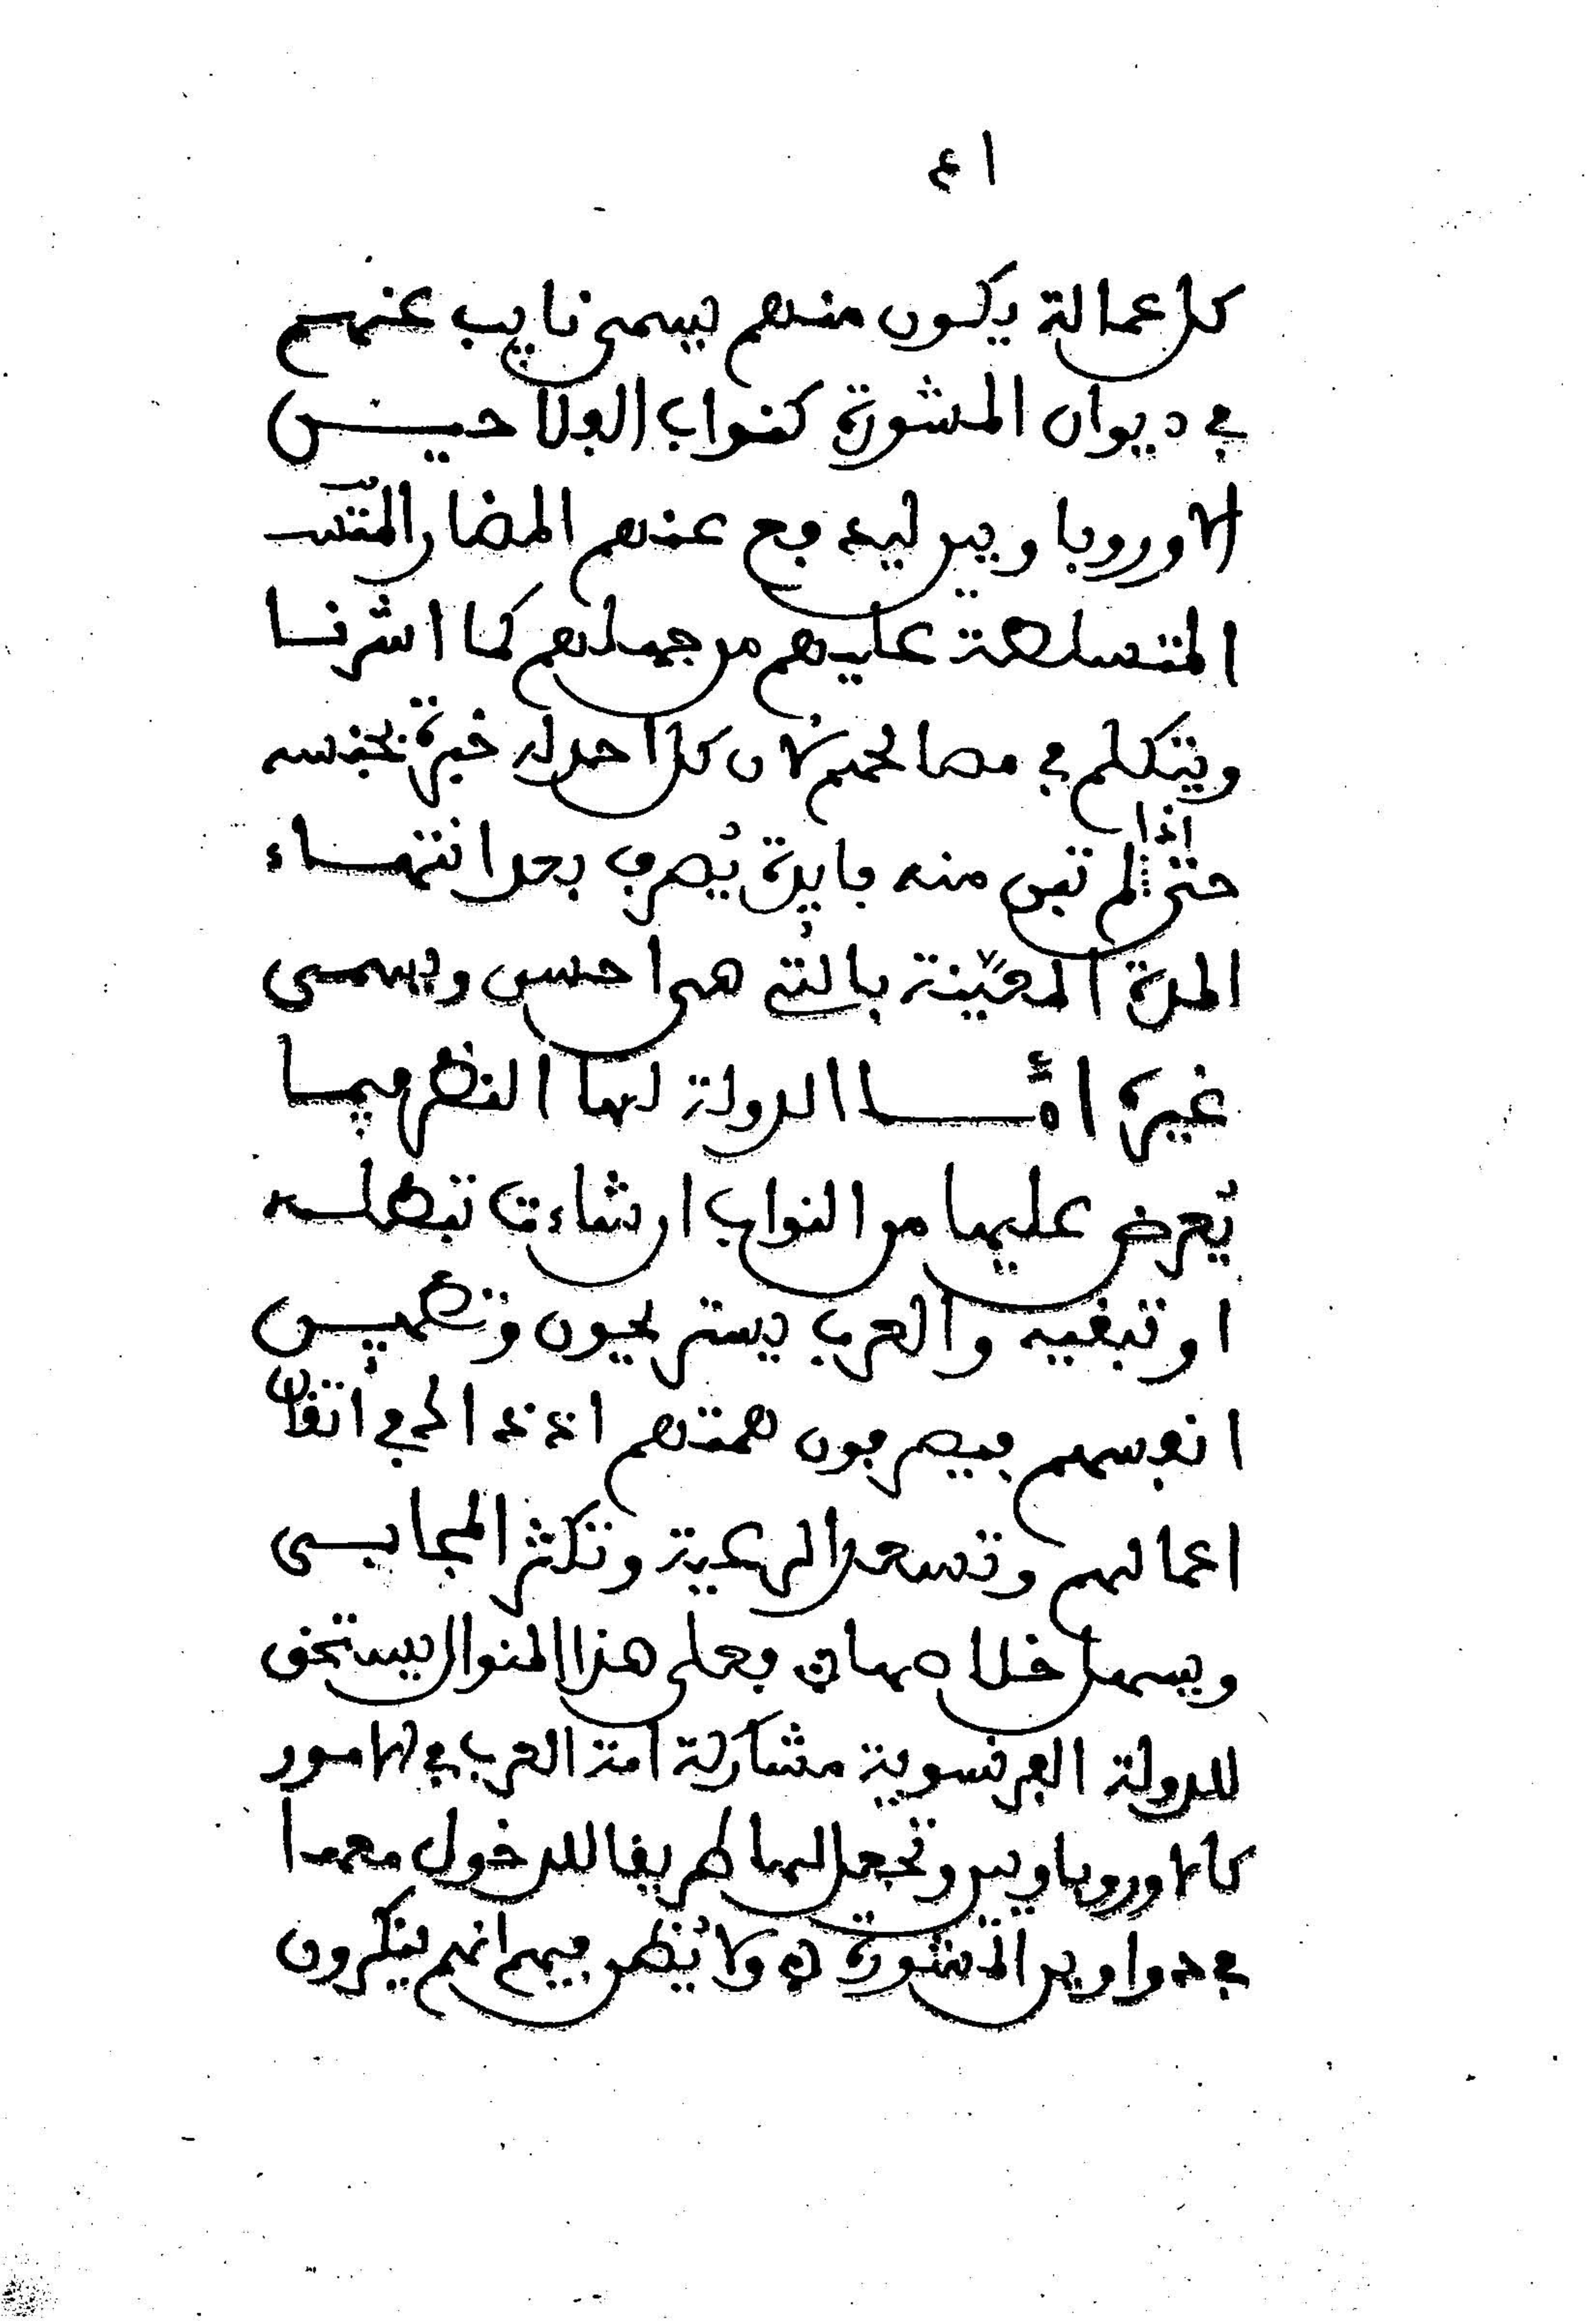 ١٤
كل عمالة يكون منهم يسمى نايب عنهم
في ديوان المشورة كنواب الفلاحيـن
الاوروباويين ليدفع عنهم المضار
المتسلطة عليهم من جهلهم كما اشرنـا
ويتكلم في مصالحهم لان كل احد له خبرة بجنسه
حتى اذا لم تبن منه فايدة يُصرف بعد انتهـاء
المدة المعيّنة بالتي هي احسن ويسمـى
غيره امّـا الدولة لها النظر فيمـا
يُعرض عليها من النواب ان شاءت تبطلـه
او تبقيه والعرب يستريحون وتطميـن
انفسهم فيصرفون همتهم اذ ذاك في اتقان
اعمالهم وتسعد الرعية وتكثر المجابـى
ويسهل خلاصها فعلى هذا المنوال يستحق
للدولة الفرنسوية مشاركة امة العرب في الامور
كالاوروباويين وتجعل لها طريقا للدخول معهـا
في دواوين المشورة ولا يُظن فيهم انهم ينكرون